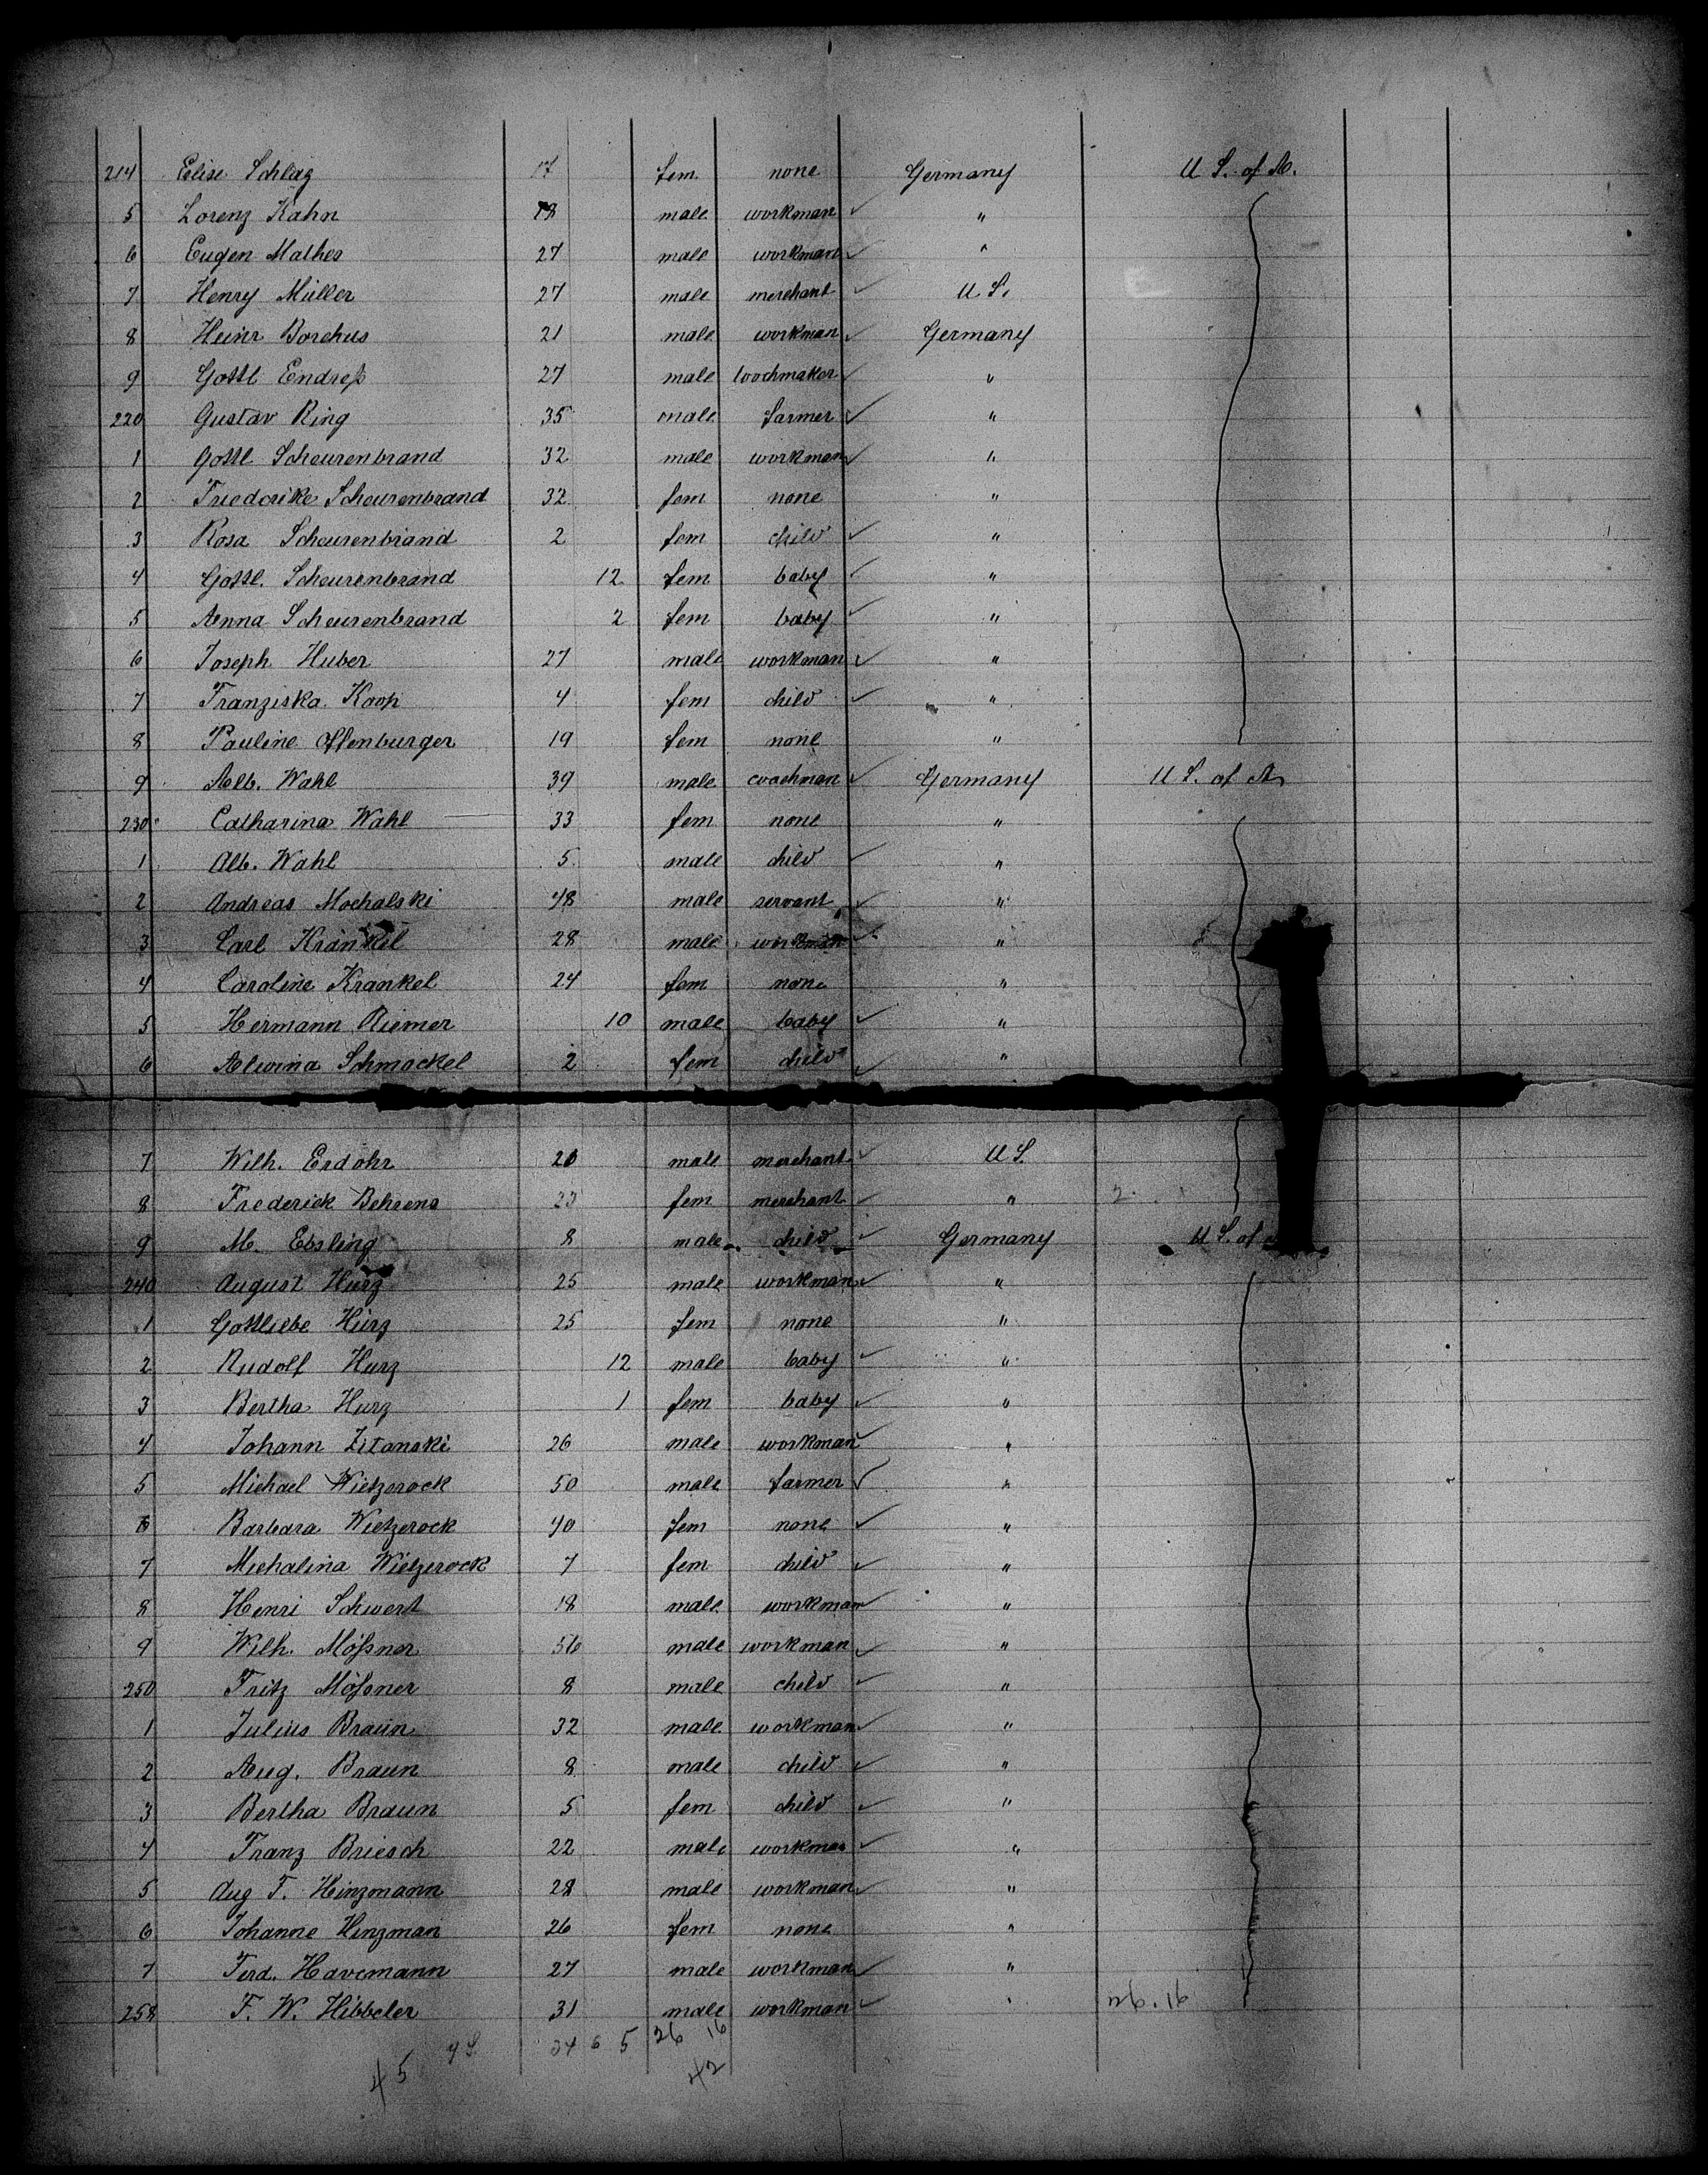 214 Elise Schlag 17 fem. none Germany U. S. of A.
5 Lorenz Kahn 18 male workman ✓ "
6 Eugen Mather 27 male workman ✓ "
7 Henry Müller 27 male merchant ✓ U. S.
8 Heinr Borchus 21 male workman ✓ Germany
9 Gottl Endreß 27 male ✓ "
220 Gustav Ring 35 male farmer ✓ "
1 Gottl Scheurenbrand 32 male workman ✓ "
2 Friederike Scheurenbrand 32 fem none "
3 Rosa Scheurenbrand 2 fem child ✓ "
4 Gottl. Scheurenbrand 12 fem baby ✓ "
5 Anna Scheurenbrand 2 fem baby ✓ "
6 Joseph Huber 27 male workman ✓ "
7 Franziska Koop 4 fem child ✓ "
8 Pauline Offenburger 19 fem none "
9 Alb. Wahl 39 male coachman ✓ Germany U S. of A
230 Catharina Wahl 33 fem none "
1 Alb. Wahl 5 male child ✓ "
2 Andreas Mochalski 48 male servant ✓ "
3 Carl Krankel 28 male workman ✓ "
4 Caroline Krankel 24 fem none "
5 Hermann Riemer 10 male baby ✓ "
6 Alwina Schmockel 2 fem child ✓ "
7 Wilh. Erdohr 20 male merchant ✓ U S.
8 Frederick Behrens fem merchant ✓ "
9 M. Ebsling 8 male child ✓ Germany U S. of
240 August Hurz 25 male workman ✓ "
1 Gottliebe Hurz 25 fem none "
2 Rudolf Hurz 12 male baby ✓ "
3 Bertha Hurz 1 fem baby ✓ "
4 Johann Zitanski 26 male workman "
5 Michael Wietzerock 50 male farmer ✓ "
6 Barbara Wietzerock 40 fem none ✓ "
7 Michalina Wietzerock 7 fem child ✓ "
8 Henri Schwert 18 male workman "
9 Wilh. Mößner 56 male workman ✓ "
250 Fritz Mößner 8 male child ✓ "
1 Julius Braun 32 male workman ✓ "
2 Aug. Braun 8 male child ✓ "
3 Bertha Braun 5 fem child ✓ "
4 Franz Briesch 22 male workman ✓ "
5 Aug F. Heinzmann 28 male workman ✓ "
6 Johanne Hinzman 26 fem none "
7 Ferd. Havemann 27 male workman ✓ "
258 F. W. Hibbeler 31 male workman ✓ " 26.16
34 6 5 26 16
45 42